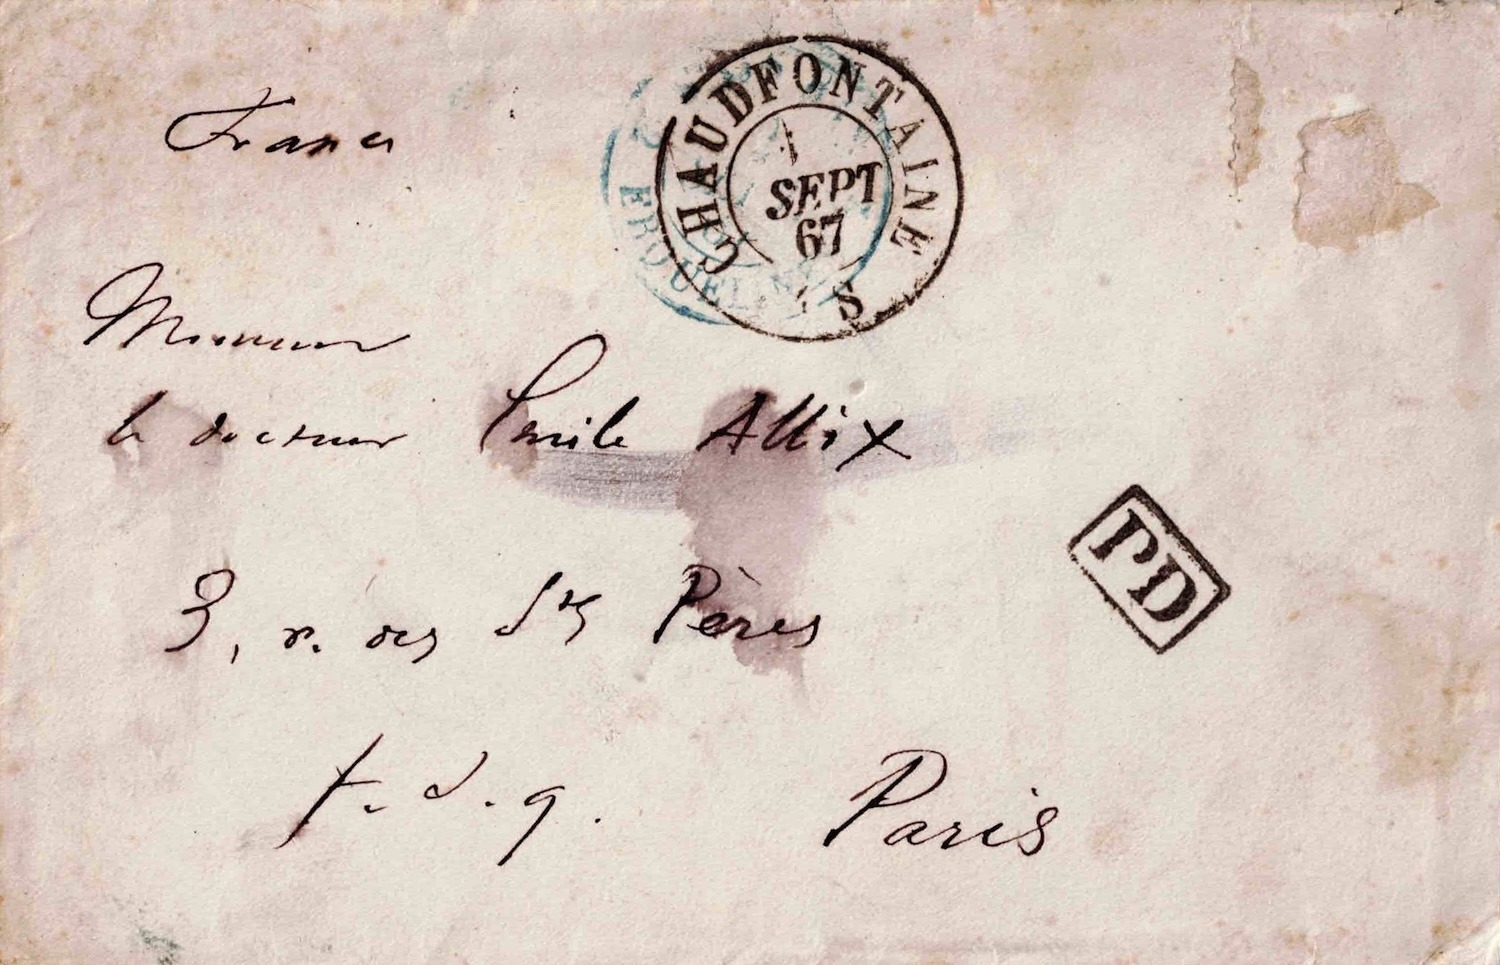 France
CHAUDFONTAINE
SEPT
67
S
ERQUEL
Monsieur
le docteur Emile Allix
PD
3, r. des Sts Pères
f. S. g.
Paris